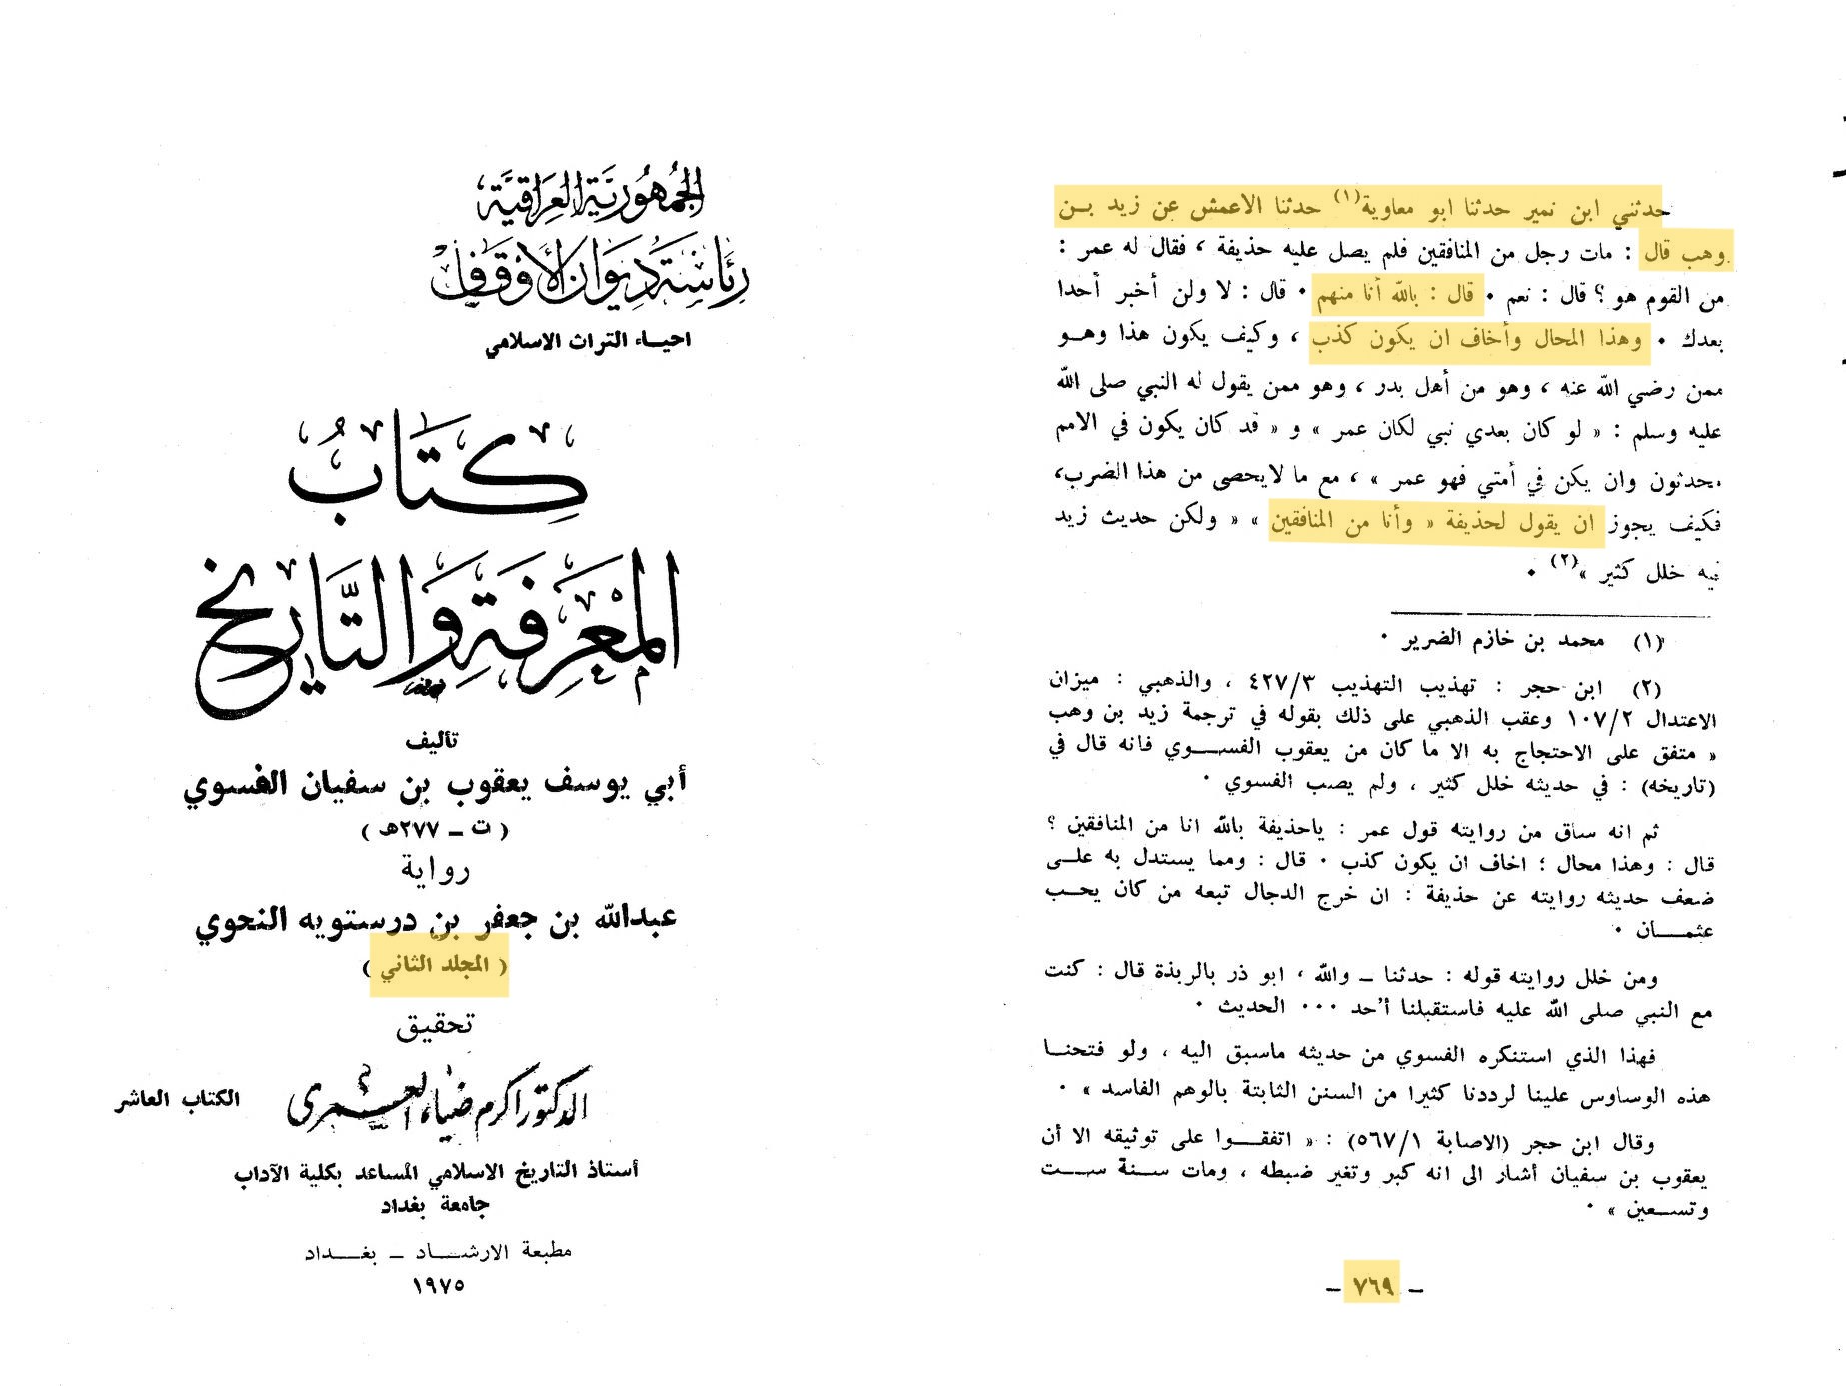 الجمهورية العراقية
رئاسة ديوان الأوقاف
احياء التراث الاسلامي
كتاب
المعرفة والتاريخ
تأليف
أبي يوسف يعقوب بن سفيان الفسوي
( ت – ٢٧٧هـ )
رواية
عبدالله بن جعفر بن درستويه النحوي
( المجلد الثاني )
تحقيق
الدكتور اكرم ضياء العمري
الكتاب العاشر
أستاذ التاريخ الاسلامي المساعد بكلية الآداب
جامعة بغداد
مطبعة الارشاد – بغداد
١٩٧٥
حدثني ابن نمير حدثنا ابو معاوية(١) حدثنا الاعمش عن زيد بن
وهب قال : مات رجل من المنافقين فلم يصل عليه حذيفة ، فقال له عمر :
من القوم هو ؟ قال : نعم . قال : بالله أنا منهم . قال : لا ولن أخبر أحدا
بعدك . وهذا المحال وأخاف ان يكون كذب ، وكيف يكون هذا وهو
ممن رضي الله عنه ، وهو من أهل بدر ، وهو ممن يقول له النبي صلى الله
عليه وسلم : « لو كان بعدي نبي لكان عمر » و « قد كان يكون في الامم
محدثون وان يكن في أمتي فهو عمر » ، مع ما لايحصى من هذا الضرب،
فكيف يجوز ان يقول لحذيفة « وأنا من المنافقين » « ولكن حديث زيد
فيه خلل كثير »(٢) .
(١) محمد بن خازم الضرير .
(٢) ابن حجر : تهذيب التهذيب ٤٢٧/٣ ، والذهبي : ميزان
الاعتدال ١٠٧/٢ وعقب الذهبي على ذلك بقوله في ترجمة زيد بن وهب
« متفق على الاحتجاج به الا ما كان من يعقوب الفسوي فانه قال في
(تاريخه) : في حديثه خلل كثير ، ولم يصب الفسوي .
ثم انه ساق من روايته قول عمر : ياحذيفة بالله انا من المنافقين ؟
قال : وهذا محال ؛ اخاف ان يكون كذب . قال : ومما يستدل به على
ضعف حديثه روايته عن حذيفة : ان خرج الدجال تبعه من كان يحب
عثمان .
ومن خلل روايته قوله : حدثنا – والله ، ابو ذر بالربذة قال : كنت
مع النبي صلى الله عليه فاستقبلنا أحد ... الحديث .
فهذا الذي استنكره الفسوي من حديثه ماسبق اليه ، ولو فتحنا
هذه الوساوس علينا لرددنا كثيرا من السنن الثابتة بالوهم الفاسد » .
وقال ابن حجر (الاصابة ٥٦٧/١) : « اتفقوا على توثيقه الا أن
يعقوب بن سفيان أشار الى انه كبر وتغير ضبطه ، ومات سنة ست
وتسعين » .
– ٧٦٩ –